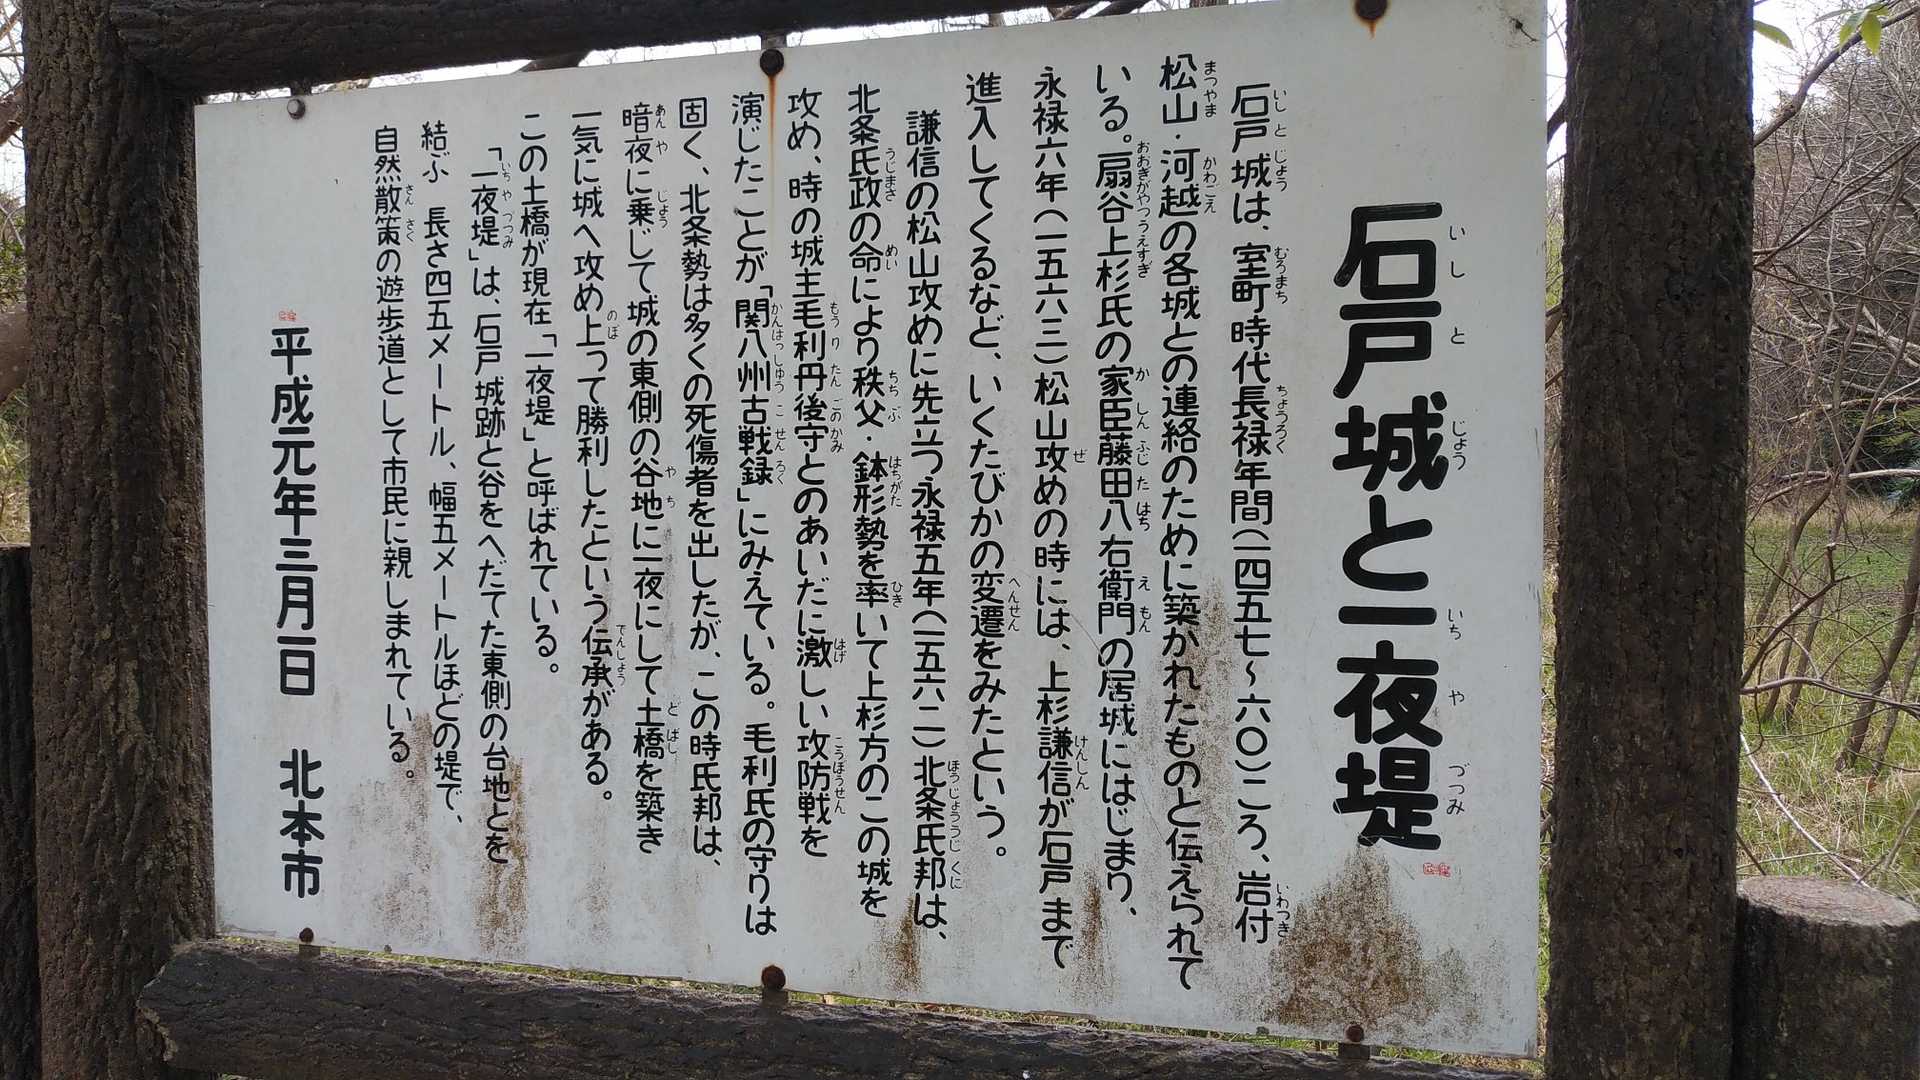 石戸城と一夜堤
石戸城は、室町時代長禄年間(一四五七～六〇)ころ、岩付
松山・河越の各城との連絡のために築かれたものと伝えられて
いる。扇谷上杉氏の家臣藤田八右衛門の居城にはじまり、
永禄六年(一五六三)松山攻めの時には、上杉謙信が石戸まで
進入してくるなど、いくたびかの変遷をみたという。
謙信の松山攻めに先立つ永禄五年(一五六二)北条氏邦は、
北条氏政の命により秩父・鉢形勢を率いて上杉方のこの城を
攻め、時の城主毛利丹後守とのあいだに激しい攻防戦を
演じたことが「関八州古戦録」にみえている。毛利氏の守りは
固く、北条勢は多くの死傷者を出したが、この時氏邦は、
暗夜に乗じて城の東側の谷地に一夜にして土橋を築き
一気に城へ攻め上って勝利したという伝承がある。
この土橋が現在「一夜堤」と呼ばれている。
「一夜堤」は、石戸城跡と谷をへだてた東側の台地とを
結ぶ 長さ四五メートル、幅五メートルほどの堤で、
自然散策の遊歩道として市民に親しまれている。
平成元年三月一日 北本市